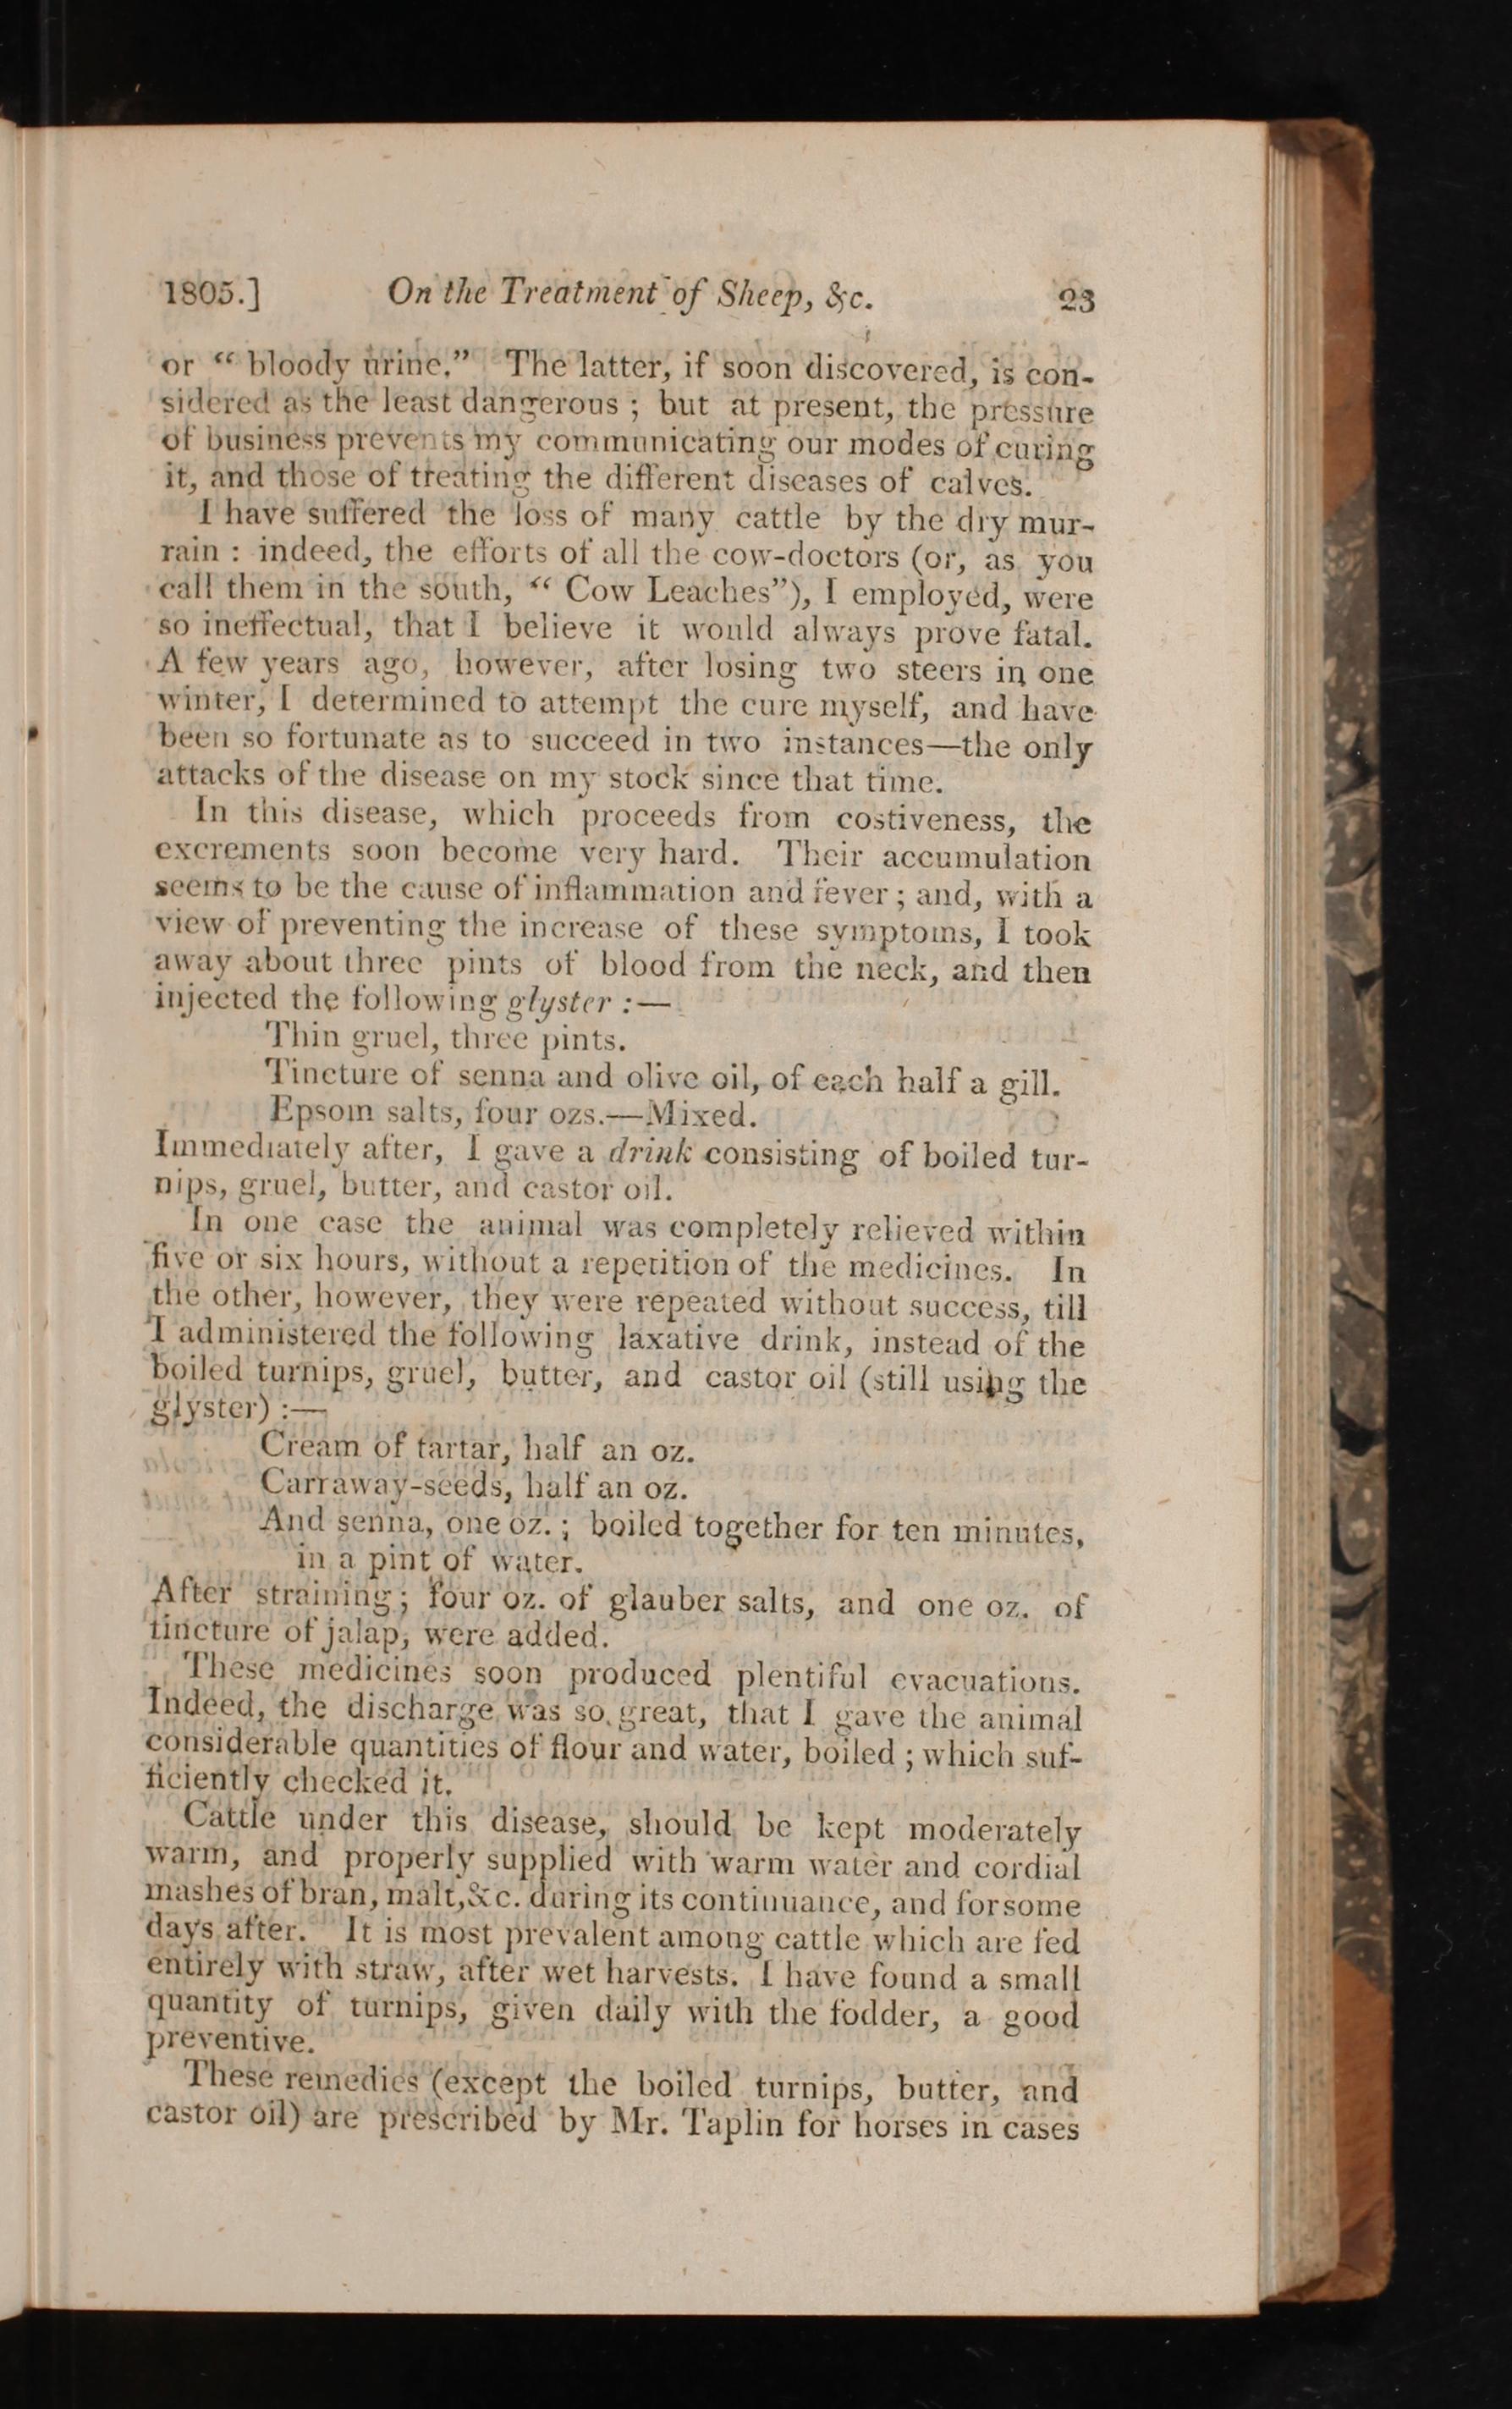 1805.] On the Treatment of Sheep, &c. 23
or “ bloody urine.” The latter, if soon discovered, is con-
sidered as the least dangerous ; but at present, the pressure
of business prevents my communicating our modes of curing
it, and those of treating the different diseases of calves.
I have suffered the loss of many cattle by the dry mur-
rain : indeed, the efforts of all the cow-doctors (or, as you
call them in the south, “ Cow Leaches”), I employed, were
so ineffectual, that I believe it would always prove fatal.
A few years ago, however, after losing two steers in one
winter, I determined to attempt the cure myself, and have
been so fortunate as to succeed in two instances—the only
attacks of the disease on my stock since that time.
In this disease, which proceeds from costiveness, the
excrements soon become very hard. Their accumulation
seems to be the cause of inflammation and fever ; and, with a
view of preventing the increase of these symptoms, I took
away about three pints of blood from the neck, and then
injected the following glyster :—
Thin gruel, three pints.
Tincture of senna and olive oil, of each half a gill.
Epsom salts, four ozs.—Mixed.
Immediately after, I gave a drink consisting of boiled tur-
nips, gruel, butter, and castor oil.
In one case the animal was completely relieved within
five or six hours, without a repetition of the medicines. In
the other, however, they were repeated without success, till
I administered the following laxative drink, instead of the
boiled turnips, gruel, butter, and castor oil (still using the
glyster) :—
Cream of tartar, half an oz.
Carraway-seeds, half an oz.
And senna, one oz. ; boiled together for ten minutes,
in a pint of water.
After straining ; four oz. of glauber salts, and one oz. of
tincture of jalap, were added.
These medicines soon produced plentiful evacuations.
Indeed, the discharge was so great, that I gave the animal
considerable quantities of flour and water, boiled ; which suf-
ficiently checked it.
Cattle under this disease, should be kept moderately
warm, and properly supplied with warm water and cordial
mashes of bran, malt, &c. during its continuance, and for some
days after. It is most prevalent among cattle which are fed
entirely with straw, after wet harvests. I have found a small
quantity of turnips, given daily with the fodder, a good
preventive.
These remedies (except the boiled turnips, butter, and
castor oil) are prescribed by Mr. Taplin for horses in cases